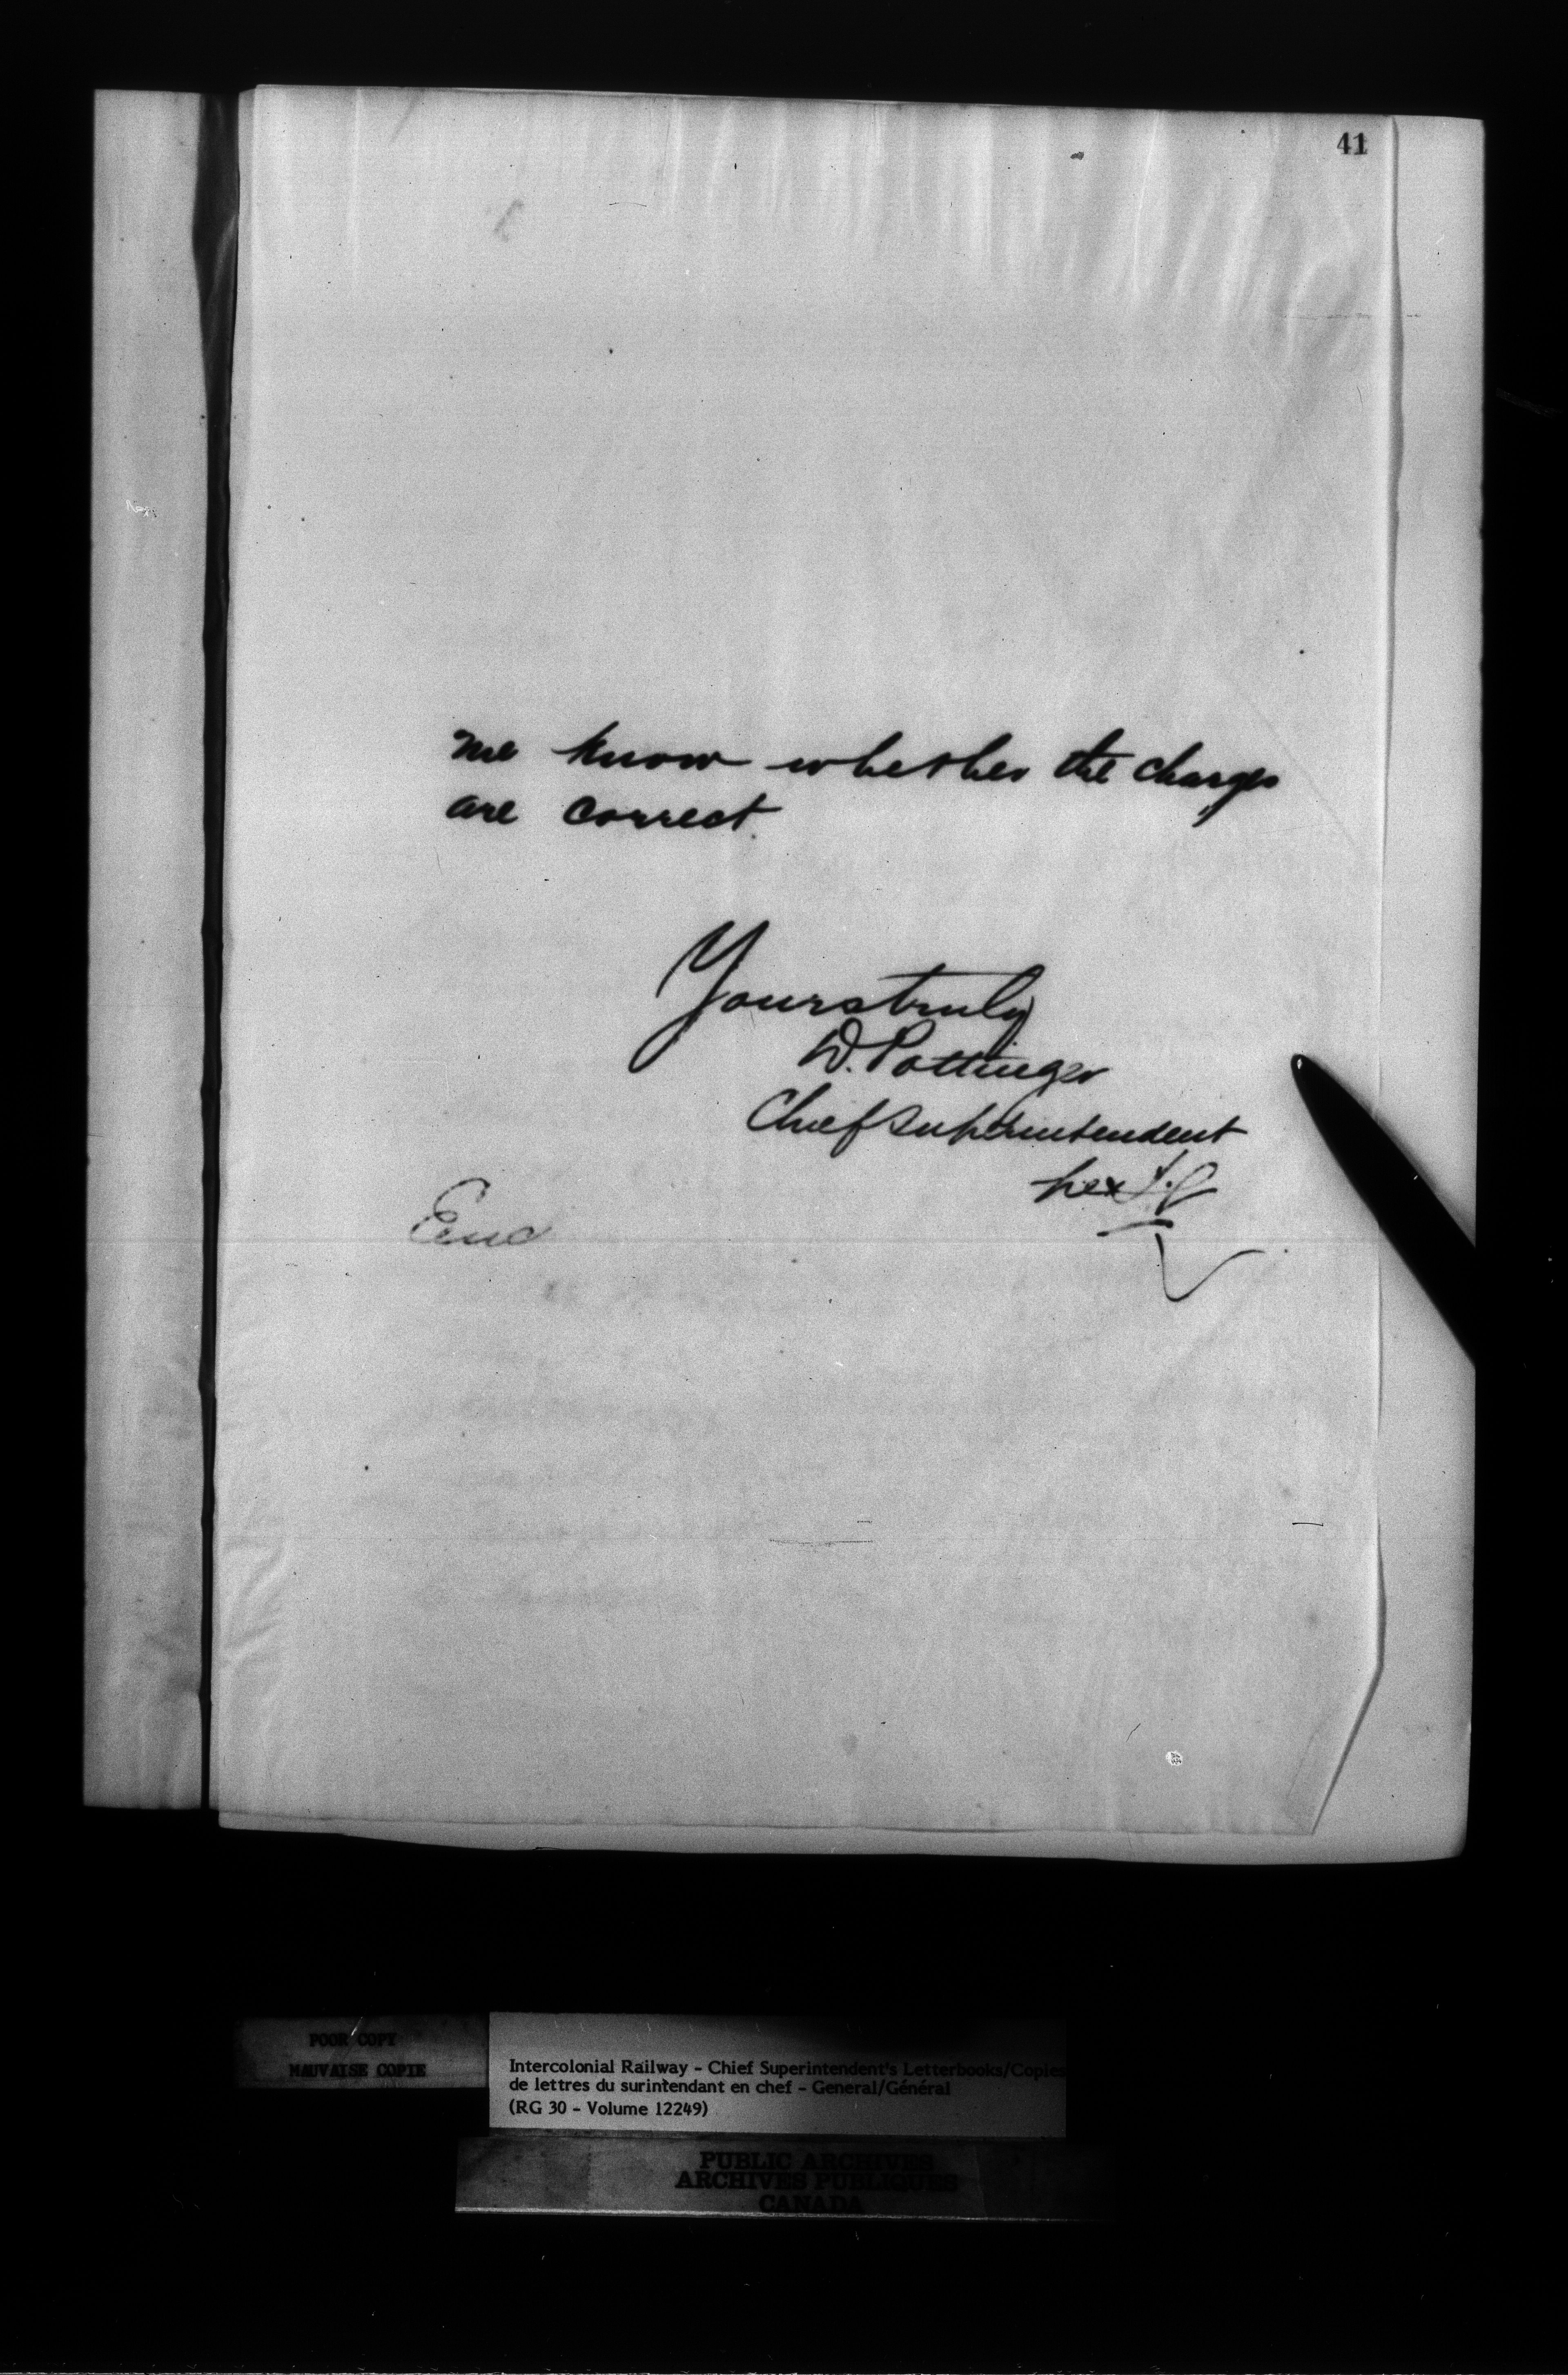 41
me know whether the charges
are correct.
Yours truly
D. Pottinger
Chief Superintendent
per
Enc
POOR COPY
MAUVAISE COPIE
Intercolonial Railway - Chief Superintendent's Letterbooks/Copies
de lettres du surintendant en chef - General/Général
(RG 30 - Volume 12249)
PUBLIC ARCHIVES
ARCHIVES PUBLIQUES
CANADA